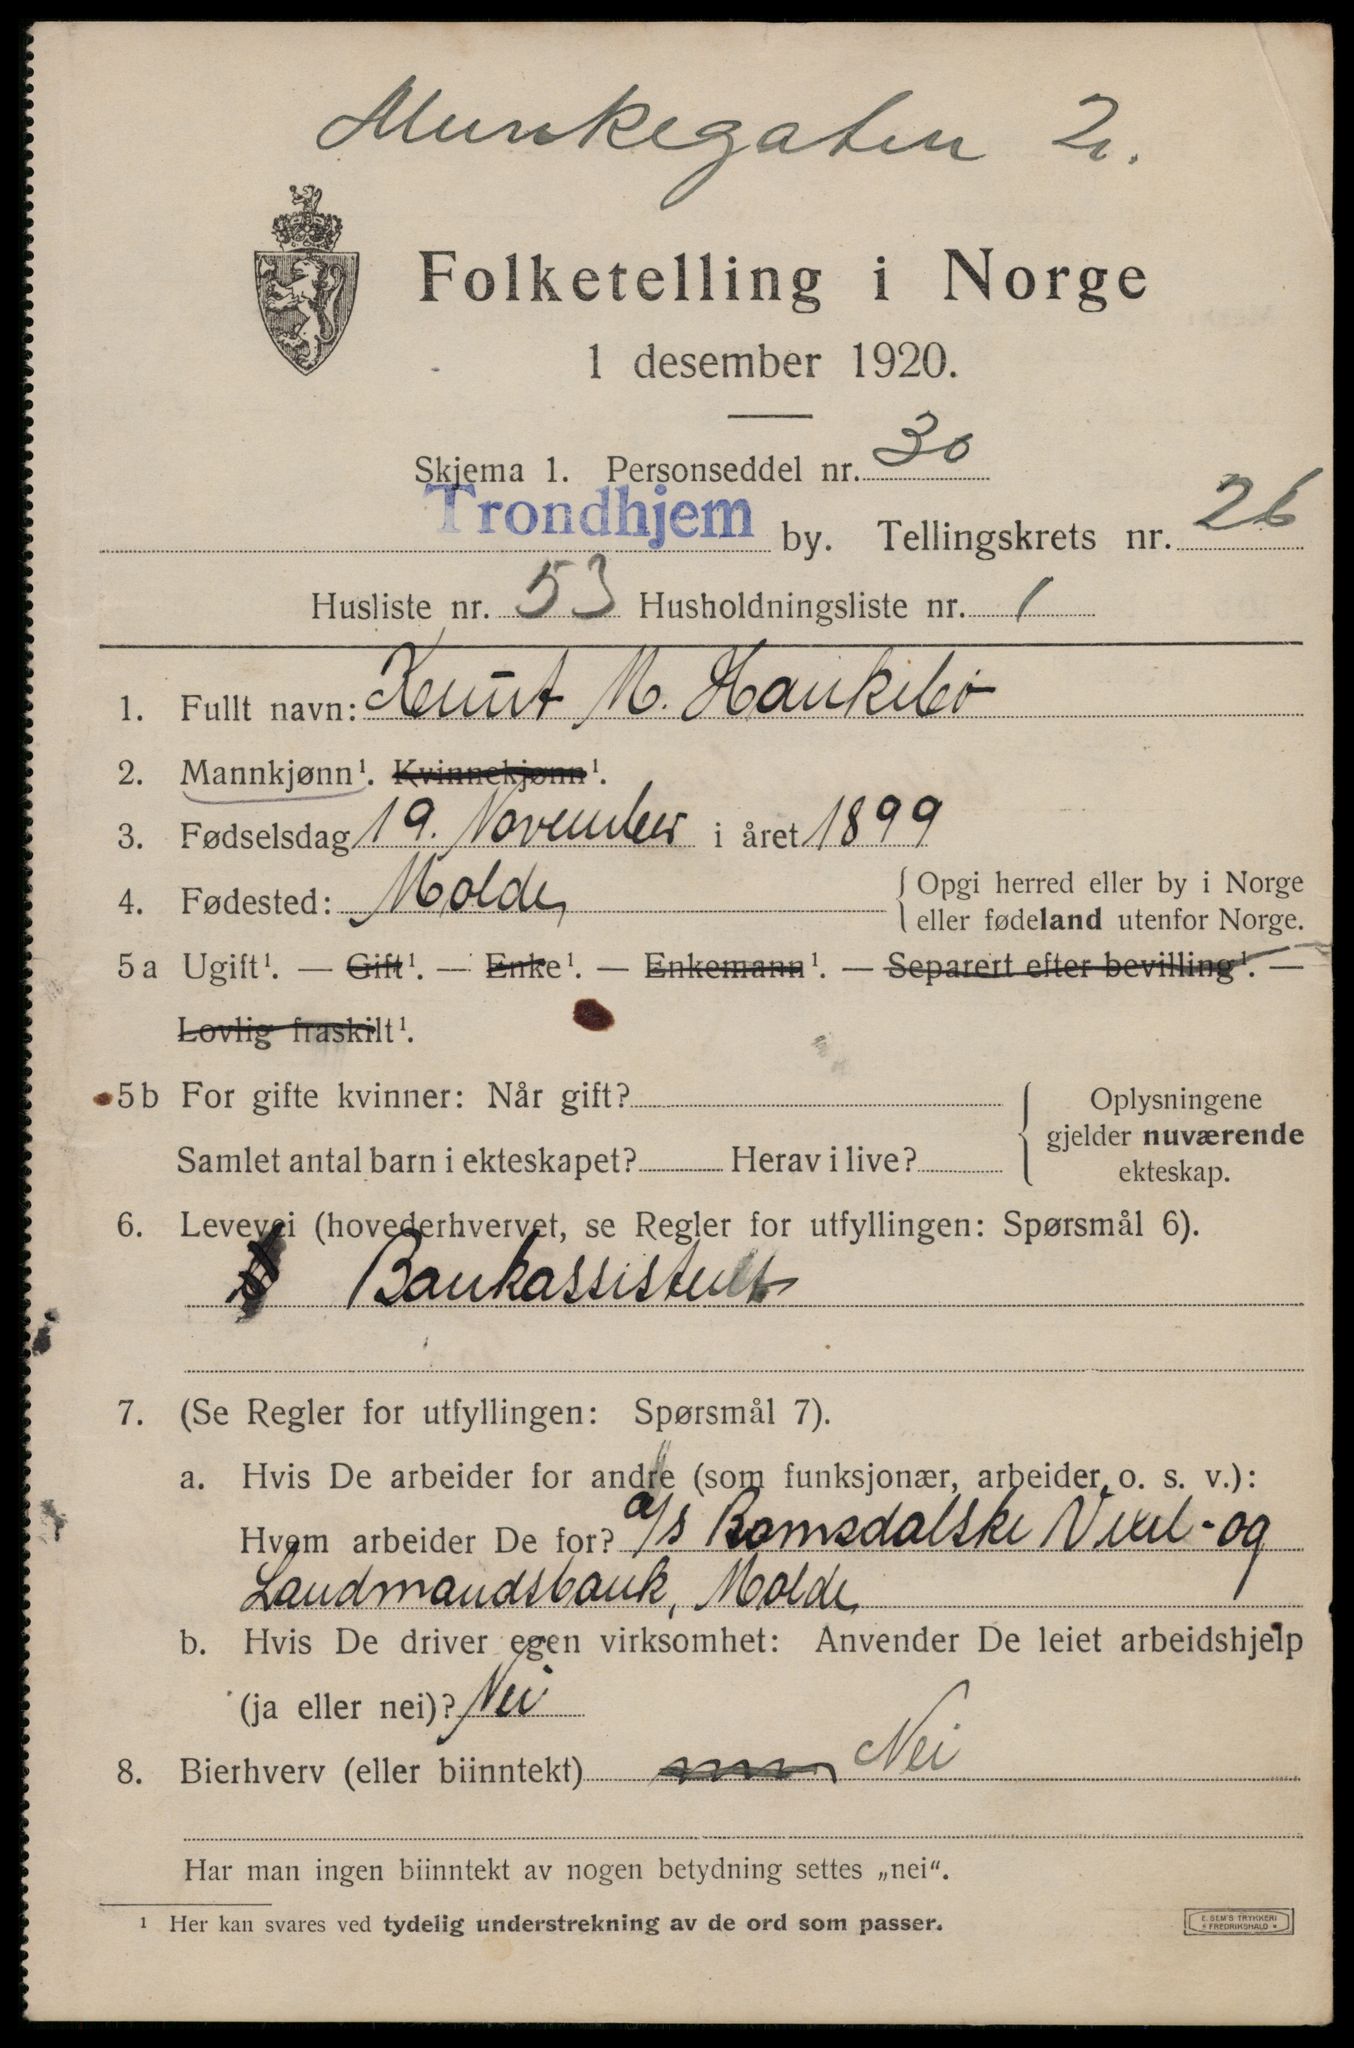 Munkegaten 2.
Folketelling i Norge
1 desember 1920.
Skjema 1. Personseddel nr. 30
Trondhjem by. Tellingskrets nr. 26
Husliste nr. 53 Husholdningsliste nr. 1
1. Fullt navn: Knut M. Haukebø
2. Mannkjønn¹. Kvinnekjønn¹.
3. Fødselsdag 19. November i året 1899
4. Fødested: Molde, { Opgi herred eller by i Norge
eller fødeland utenfor Norge.
5a Ugift¹. — Gift¹. — Enke¹. — Enkemann¹. — Separert efter bevilling¹. —
Lovlig fraskilt¹.
5b For gifte kvinner: Når gift? { Oplysningene
gjelder nuværende
Samlet antal barn i ekteskapet? Herav i live?
ekteskap.
6. Levevei (hovederhvervet, se Regler for utfyllingen: Spørsmål 6).
Bankassistent
7. (Se Regler for utfyllingen: Spørsmål 7).
a. Hvis De arbeider for andre (som funksjonær, arbeider o. s. v.):
Hvem arbeider De for? a/s Romsdalske Vexel- og
Landmandsbank, Molde,
b. Hvis De driver egen virksomhet: Anvender De leiet arbeidshjelp
(ja eller nei)? Nei
8. Bierhverv (eller biinntekt) Nei
Har man ingen biinntekt av nogen betydning settes „nei“.
¹ Her kan svares ved tydelig understrekning av de ord som passer.
E. SEM'S TRYKKERI
* FREDRIKSHALD *